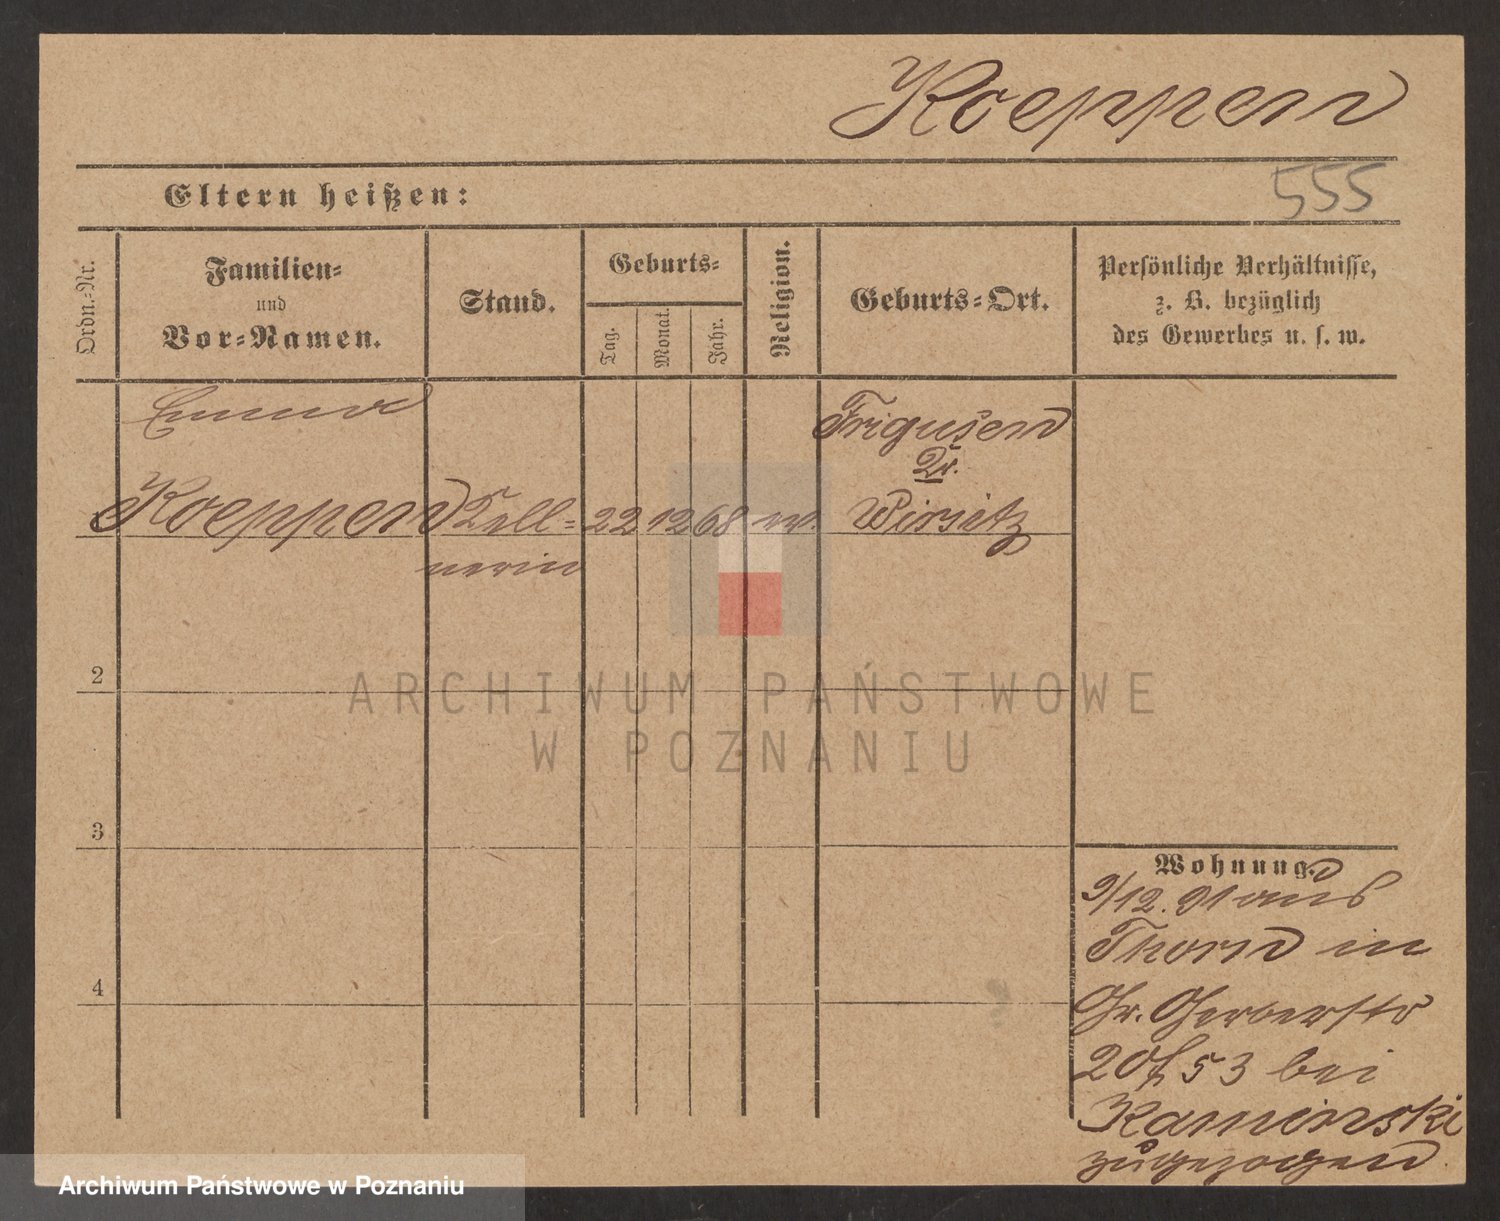 Koeppen
Eltern heißen:
555
Ordn.-Nr.
Familien-
und
Vor-Namen.
Stand.
Geburts-
Tag.
Monat.
Jahr.
Religion.
Geburts-Ort.
Persönliche Verhältnisse,
z. B. bezüglich
des Gewerbes u. s. w.
Emma
Koeppen Kell- 22 12 68 ev.
nerin
Kr.
Wirsitz
2
3
4
Wohnung.
9/12. 91 aus
Thorn in
Gr. Gerberstr
53 bei
Kaminski
zugezogen.
ARCHIWUM PAŃSTWOWE
W POZNANIU
Archiwum Państwowe w Poznaniu